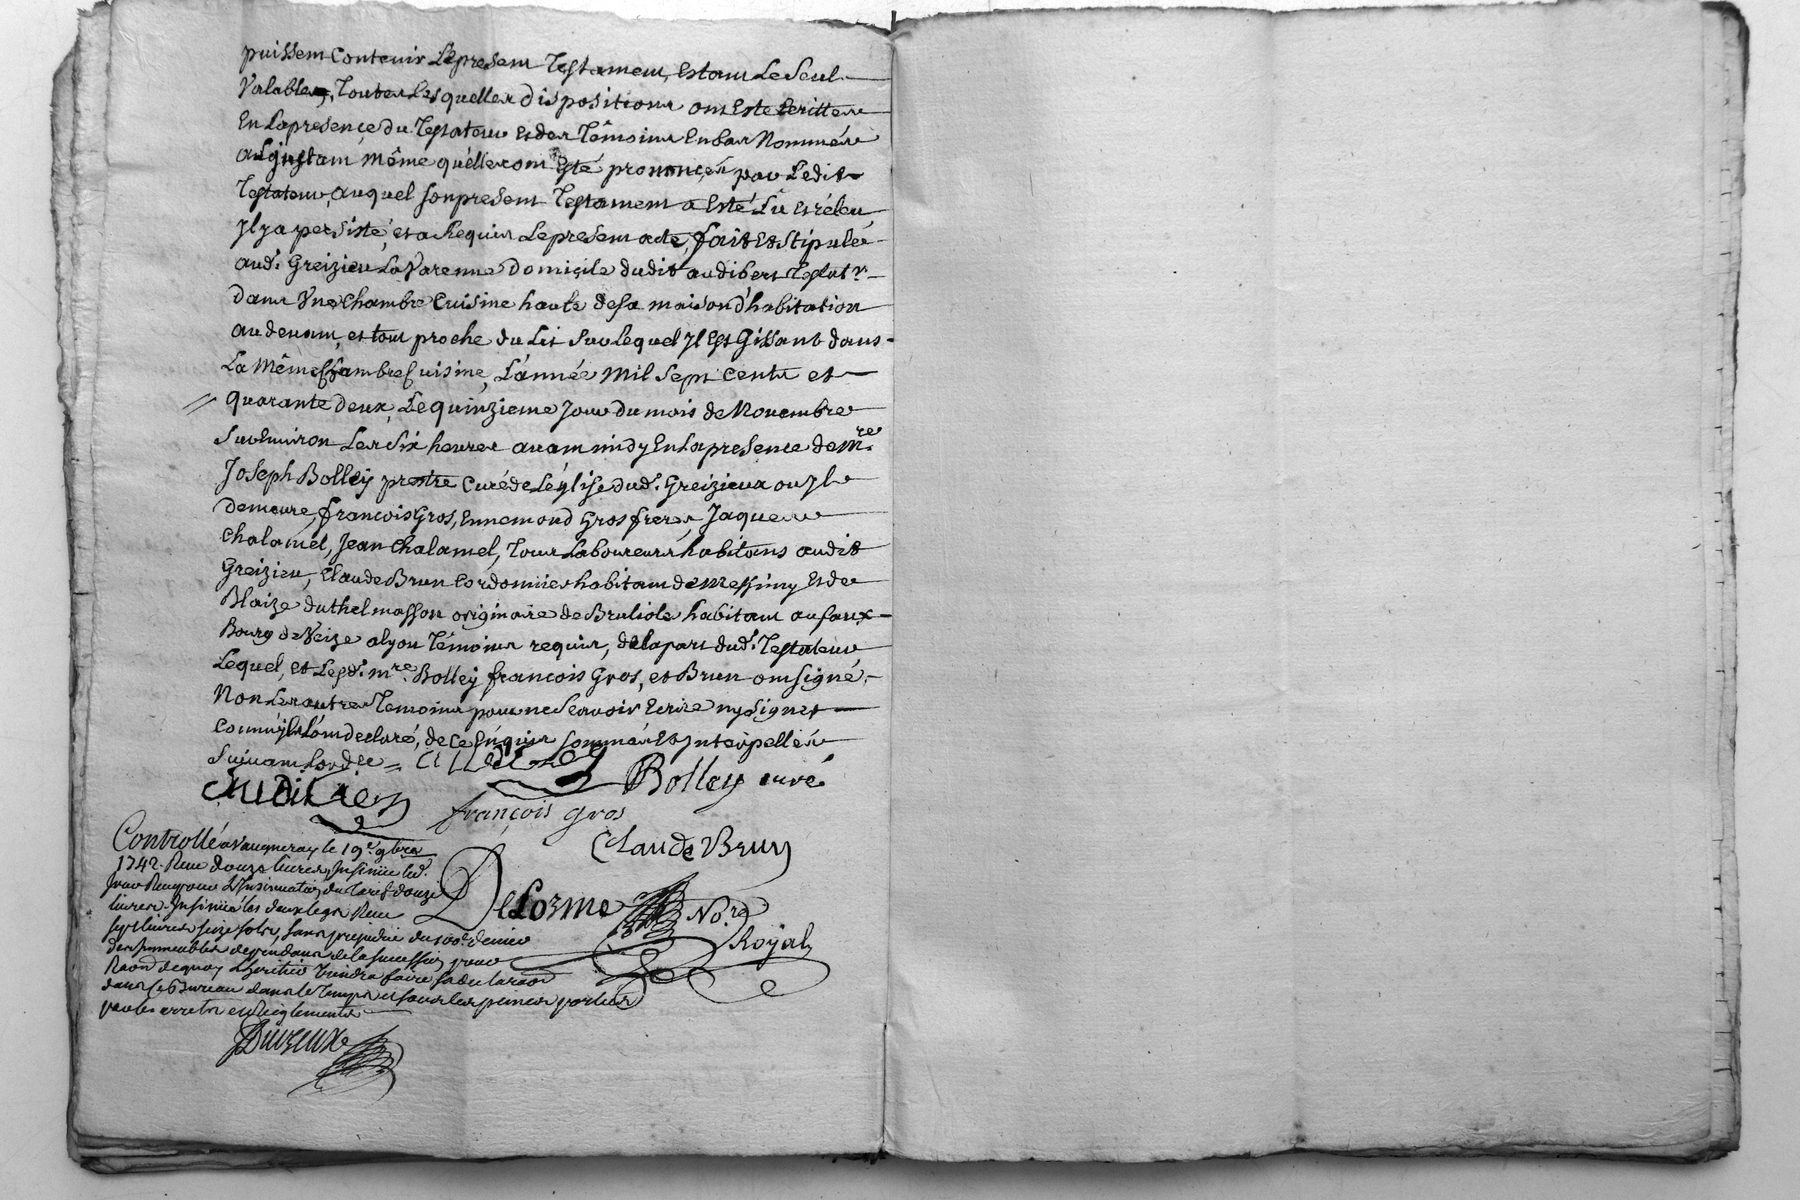 puissent Contenir Le present Testament, Estant Le Seul
Valable, Toutes Lesquelles dispositions ont Esté Ecrittes
En La presençe du Testateur Et des Témoins En bas Nommés
a L'jnstant même quélles ont Esté pronnonçés par Ledit
Testateur, auquel son present Testament a Esté Lû Et rélеu
Jl y a persisté, et a Requis Le present acte, fait Et Stipulée
aud.t Greizieu La Varenne Domiçile dudit audibert Testat.r
dans Vne Chambre Cuisine haute de sa maison d'habitation
au devant, et tout proche du Lit Sur Lequel Jl Est Gissant dans
La Même Chambre Cuisine, L'année Mil Sept Cents et
quarante deux, Le quinzieme Jour du mois de Novembre
Sur Environ Les Six heures avant midy En La presence de M.re
Joseph Bolley prestre Curé de L'église dud.t Greizieux ou Jl
demeure, françois Gros, Ennemond Gros freres, Jaques
Chalamel, Jean Chalamel, Tous Laboureurs habitans audit
Greizieu, Claude Brun Cordonnier habitant de Messimy Et de
Blaize duthel masson originaire de Bruliole habitant au faux
Bourg de Veize a lyon Témoins requis, de la part dud.t Testateur
Lequel, et Led.t m.re Bolley françois Gros, et Brun ont signé,
Non Les autres Temoins pour ne Scavoir Ecrire ny Signer
Comm'jls L'ont declaré, de Ce Enquis Sommés Et Jnterpellés
Suivant L'ordce
Bolley curé
françois gros
Claude Brun
Controllé a Vaugneray le 19.e 9bre
1742. Reçu douze livres, Insinué led.t
Jour Reçu pour L'Insinuation du Tarif douze
livres. Insinué les deux legs Reçu
sept livres seize sols, sans prejudice du 100e denier
des Immeubles dependans de la succession pour
Raon de quoy L'heritier Viendra faire sa declaraon
dans ce Bureau dans le Temps et sous les peines portées
par les arrets et Reglements
DeLorme No.re
Royal